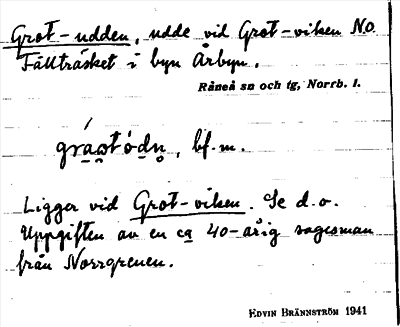 Grot-udden, udde vid Grot-viken NO
Fällträsket i byn Årbyn.
Råneå sn och tg, Norrb. l.
gra̯o̯tódn̥, bf. m.
Ligger vid Grot-viken. Se d.o.
Uppgiften av en ca 40-årig sagesman
från Norrgrenen.
EDVIN BRÄNNSTRÖM 1941